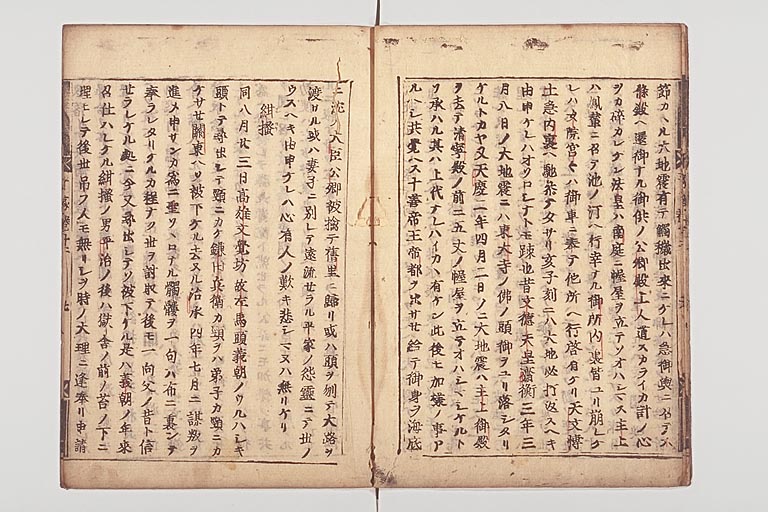 節カヽル大地震有テ觸穢出來ニケレハ急御輿ニ召テ六
條殿ヘ還御ナル御供ノ公卿殿上人道スカライカ計ノ心
ヲカ碎カレケン法皇ハ南庭ニ幄屋ヲ立テソオハシマス主上
ハ鳳輦ニ召テ池ノ汀ヘ行幸ナル御所内裏皆ユリ崩レケ
レハ女院宮々ハ御車ニ奉テ他所ヘ行啓有ケリ天文博
士急内裏ヘ馳參テ夕サリ亥子刻ニハ大地必打返スヘキ
由申ケレハオソロシナトモ踈也昔文德天皇齊衡三年三
月八日ノ大地震ニハ東大寺ノ佛ノ頭御ヲユリ落シタリ
ケルトカヤ又天慶二年四月二日ノ大地震ハ主上御殿
ヲ去テ清寧殿ノ前ニ五丈ノ幄屋ヲ立テオハシマシケルト
ソ承ハル其ハ上代ナレハイカヽ有ケン此後モ加樣ノ事ア
ルヘシ共覺ヘス十善帝王帝都ヲ出サセ給テ御身ヲ海底
ニ沈メ大臣公卿被擒テ舊里ニ歸リ或ハ頭ヲ刎テ大路ヲ
渡サル或ハ妻子ニ別レテ遠流セラル平家ノ怨靈ニテ世ノ
ウスヘキ由申ケレハ心有人ノ歎キ悲シマヌハ無リケリ
紺搔
同八月廿三日高雄文覺坊故左馬頭義朝ノウルハシキ
頭トテ尋出シテ頸ニカケ鎌田兵衛カ頸ヲハ弟子カ頸ニカ
ケサセ關東ヘソ被下ケル去ヌル治承四年七月ニ謀叛ヲ
進メ申サンカ為ニ聖ソヽロナル髑髏ヲ一句ハ布ニ裹ンテ
奉ラレタリケルカ程ナク世ヲ討取テ後モ一向父ノ昔ト信
セラレケル処ニ今又尋出シテソ被下ケル是ハ義朝ノ年來
召仕ハレケル紺搔ノ男平治ノ後ハ獄舎ノ前ノ苔ノ下ニ
埋モレテ後世吊フ人モ無リシヲ時ノ大理ニ逢奉リ申請